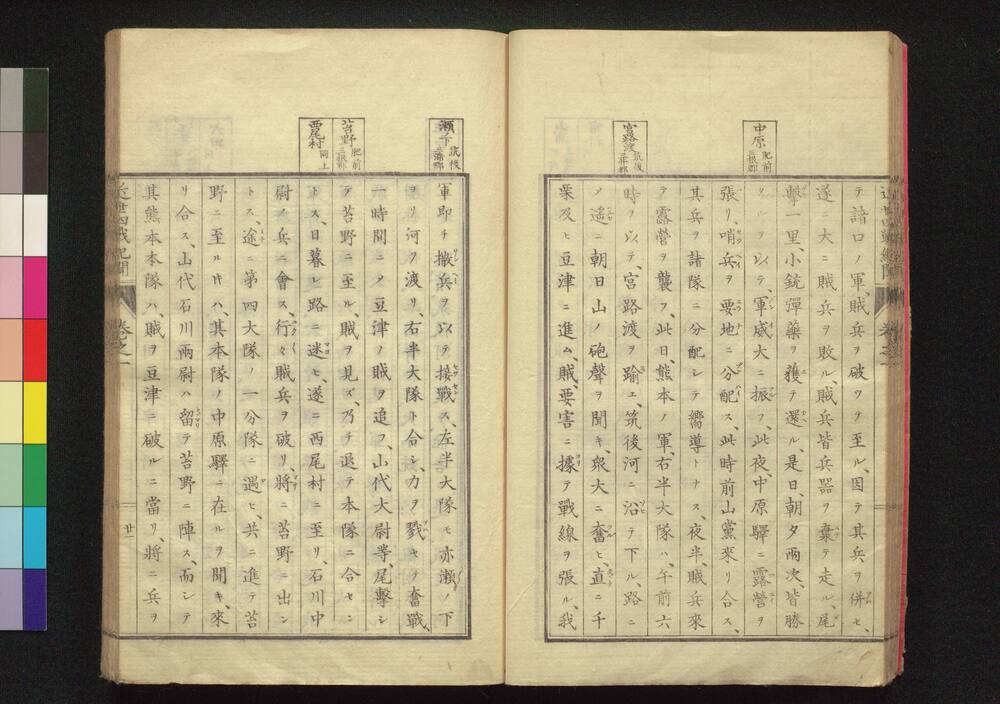 中原 肥前三根郡
宮路渡 筑後三潴郡
テ諸口ノ軍賊兵ヲ破ツテ至ル、因テ其兵ヲ併セ、
遂ニ大ニ賊兵ヲ敗ル、賊兵皆兵器ヲ棄テ走ル、尾
撃一里、小銃彈藥ヲ獲テ還ル、是日、朝夕兩次、皆勝
ツルヲ以テ、軍威大ニ振フ、此夜、中原驛ニ露營ヲ
張リ、哨兵ヲ要地ニ分配ス、此時前山黨來リ合ス、
其兵ヲ諸隊ニ分配シテ嚮導トナス、夜半、賊兵來
ヲ露營ヲ襲フ、此日、熊本ノ軍、右半大隊ハ、午前六
時ヲ以テ、宮路渡ヲ踰エ、筑後河ニ沿テ下ル、路ニ
ノ遥ニ朝日山ノ砲聲ヲ聞キ、衆大ニ奮ヒ、直ニ千
栗及ヒ豆津ニ進ム、賊、要害ニ據テ戰線ヲ張ル、我
瀬ノ下 筑後三潴郡
苔野 肥前三根郡
西尾村 同上
軍即チ撒兵ヲ以テ接戰ス、左半大隊モ亦瀬ノ下
ヨリ河ヲ渡リ、右半大隊ト合シ、力ヲ戮セテ奮戰、
一時間ニメ豆津ノ賊ヲ追フ、山代大尉等、尾擊シ
テ苔野ニ至ル、賊ヲ見ズ、乃チ退テ本隊ニ合セン
トス、日暮レ路ニ迷ヒ、遂ニ西尾村ニ至リ、石川中
尉ノ兵ニ會ス、行々賊兵ヲ破リ、將ニ苔野ニ出ン
トス、途ニ第四大隊ノ一分隊ニ遇ヒ、共ニ進テ苔
野ニ至ル片ハ、其本隊ノ中原驛ニ在ルヲ聞キ、來
リ合ス、山代石川兩尉ハ留テ苔野ニ陣ス、而シテ
其熊本本隊ハ、賊ヲ豆津ニ破ルニ當リ、將ニ兵ヲ
近世四戰紀聞 卷之一 廿一